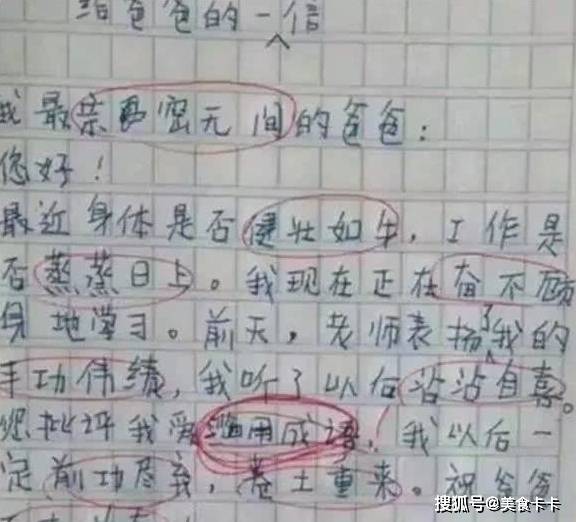 给爸爸的一信
我最亲密无间的爸爸：
您好！
最近身体是否健壮如牛，工作是
否蒸蒸日上。我现在正在奋不顾
身地学习。前天，老师表扬了我的
丰功伟绩，我听了以后沾沾自喜。
您批评我爱滥用成语，我以后一
定前功尽弃，卷土重来。祝爸爸
搜狐号@美食卡卡